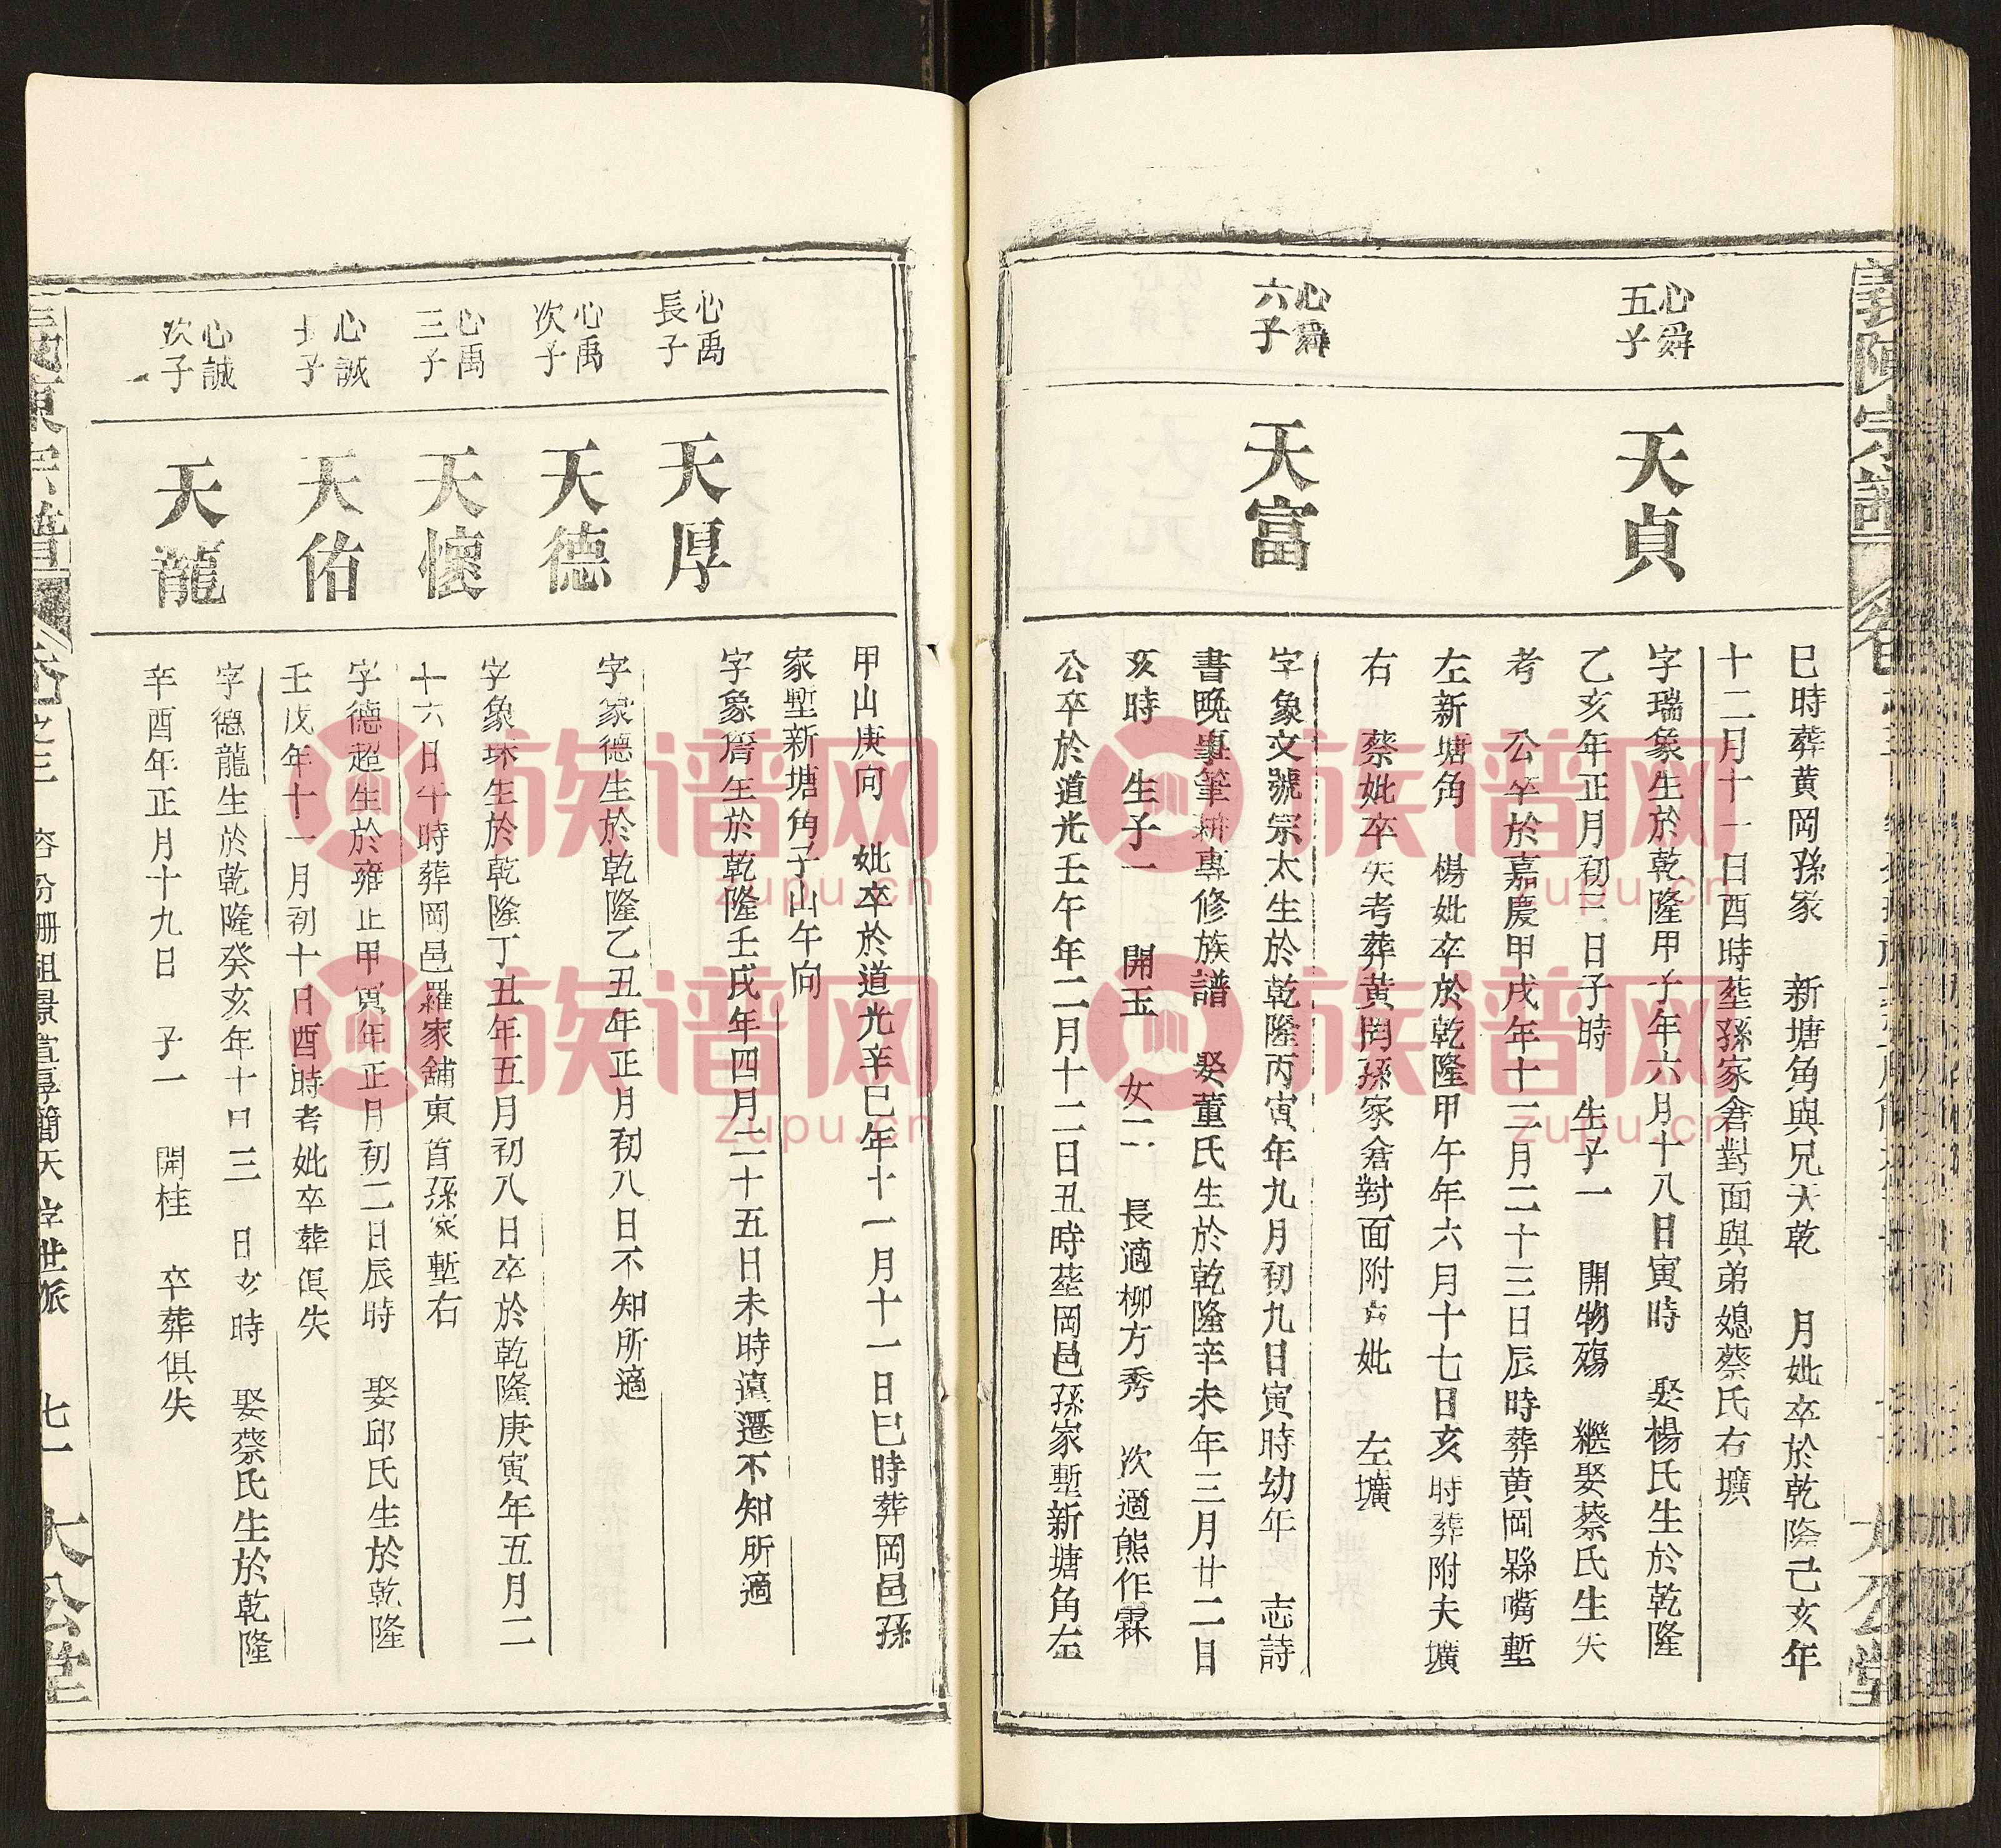 義陳宗譜
大公堂
心舜
五子
天貞
巳時葬黄岡孫家 新塘角與兄天乾 月妣卒於乾隆己亥年
十二月十一日酉時塟孫家倉對面與弟媳蔡氏右壙
字瑞象生於乾隆甲子年六月十八日寅時 娶楊氏生於乾隆
乙亥年正月初三日子時 生子一 開物殤 繼娶蔡氏生失
考 公卒於嘉慶甲戌年十二月二十三日辰時葬黄岡縣嘴塹
左新塘角 楊妣卒於乾隆甲午年六月十七日亥時葬附夫壙
右 蔡妣卒失考葬黄岡孫家倉對面附古妣 左壙
心舜
六子
天富
字象文號宗太生於乾隆丙寅年九月初九日寅時幼年 志詩
書晚事筆耕專修族譜 娶董氏生於乾隆辛未年三月廿二日
亥時 生子一 開玉 女二 長適柳方秀 次適熊作霖
公卒於道光壬午年二月十二日丑時塟岡邑孫家塹新塘角左
甲山庚向 妣卒於道光辛巳年十一月十一日巳時葬岡邑孫
家塹新塘角子山午向
心禹
長子
天厚
字象唐生於乾隆壬戌年四月二十五日未時遠遷不知所適
心禹
次子
天德
字象德生於乾隆乙丑年正月初八日不知所適
心禹
三子
天懷
字象环生於乾隆丁丑年五月初八日卒於乾隆庚寅年五月二
十六日午時葬岡邑羅家舖東首孫家塹右
心誠
長子
天佑
字德超生於雍正甲寅年正月初二日辰時 娶邱氏生於乾隆
壬戌年十一月初十日酉時考妣卒葬俱失
心誠
次子
天龍
字德龍生於乾隆癸亥年十日三 日亥時 娶蔡氏生於乾隆
辛酉年正月十九日 子一 開桂 卒葬俱失
卷之三 容份珊祖景宣專簡天字世派 七一 大公堂
族谱网
zupu.cn
族谱网
zupu.cn
族谱网
zupu.cn
族谱网
zupu.cn